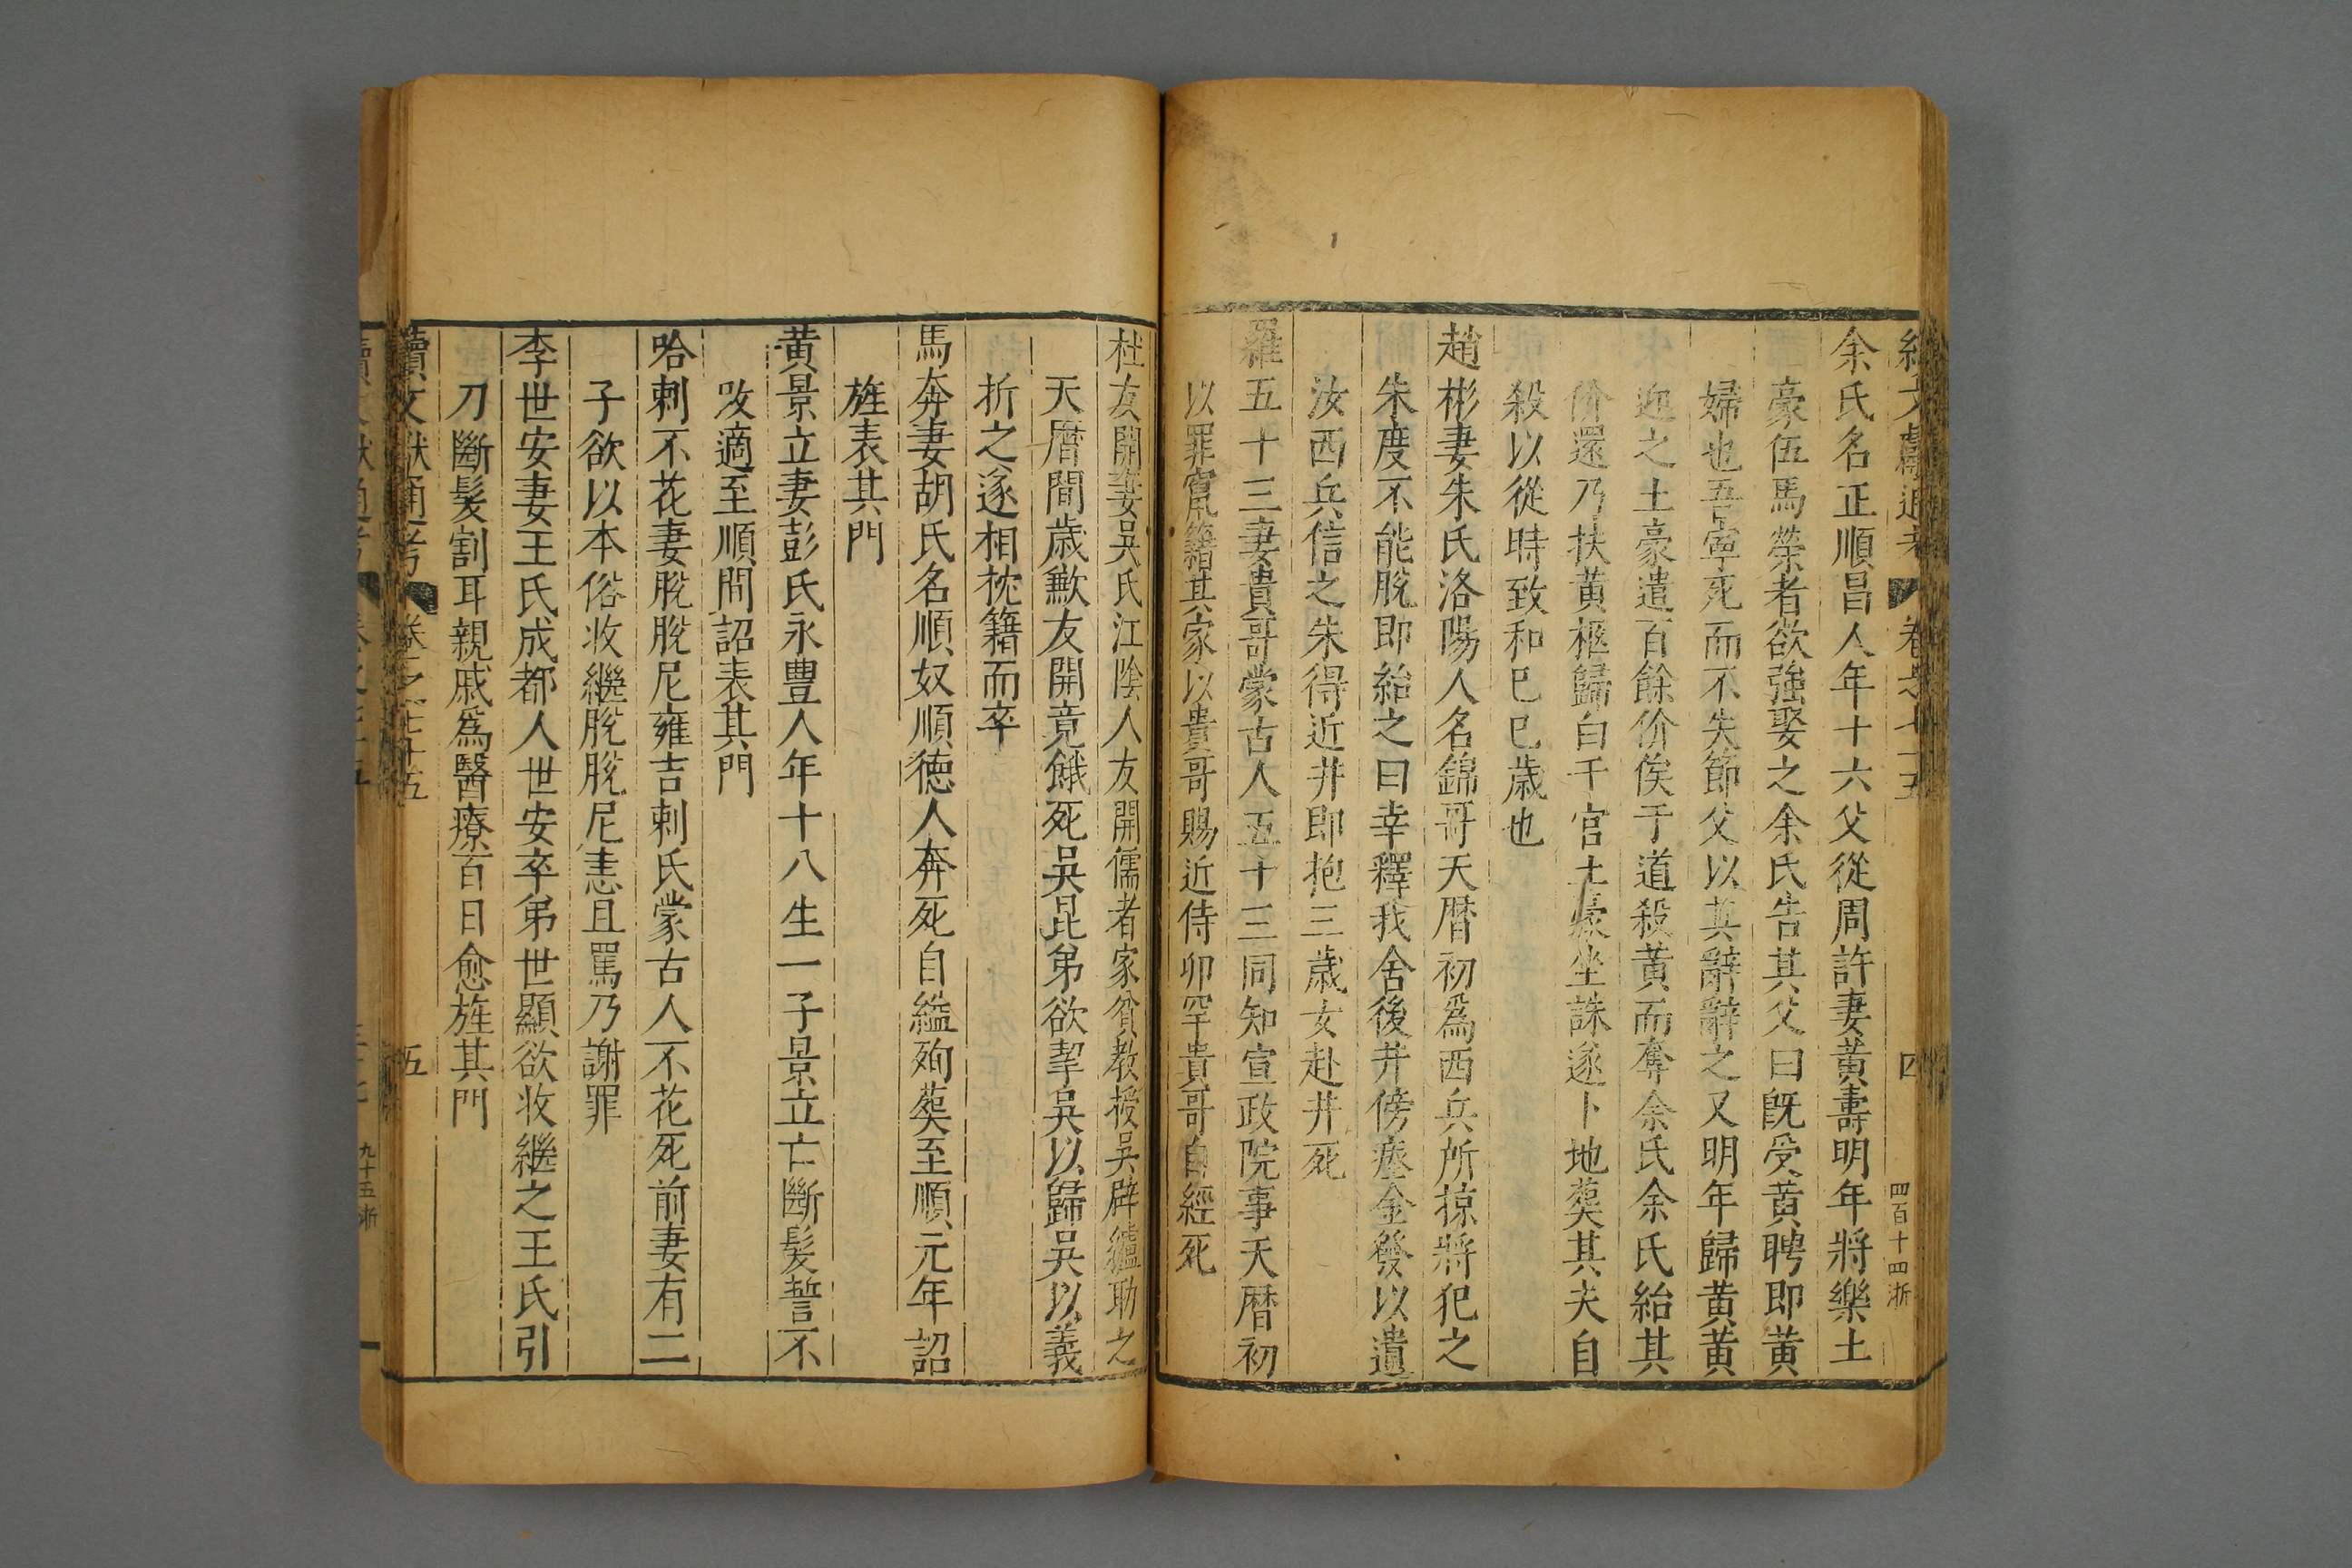 續文獻通考 卷之七十五 四 四百十四 浙
余氏名正順昌人年十六父從周許妻黃壽明年將樂土
豪伍馬榮者欲強娶之余氏告其父曰旣受黃聘即黃
婦也吾寧死而不失節父以其辭辭之又明年歸黃黃
迎之土豪遣百餘价俟于道殺黃而奪余氏余氏紿其
价還乃扶黃柩歸白于官土豪坐誅遂卜地葬其夫自
殺以從時致和己巳歲也
趙彬妻朱氏洛陽人名錦哥天曆初爲西兵所掠將犯之
朱度不能脫即紿之曰幸釋我舍後井傍瘞金發以遺
汝西兵信之朱得近井即抱三歲女赴井死
羅五十三妻貴哥蒙古人五十三同知宣政院事天曆初
以罪竄籍其家以貴哥賜近侍卯罕貴哥自經死
杜友開妻吳氏江陰人友開儒者家貧教授吳辟纑助之
天曆間歲歉友開竟餓死吳昆弟欲挈吳以歸吳以義
折之遂相枕籍而卒
馬奔妻胡氏名順奴順德人奔死自縊殉葬至順元年詔
旌表其門
黃景立妻彭氏永豐人年十八生一子景立亡斷髮誓不
改適至順間詔表其門
哈剌不花妻脫脫尼雍吉剌氏蒙古人不花死前妻有二
子欲以本俗收繼脫脫尼恚且罵乃謝罪
李世安妻王氏成都人世安卒弟世顯欲收繼之王氏引
刀斷髮割耳親戚爲醫療百日愈旌其門
續文獻通考 卷之七十五 五
九十五 浙